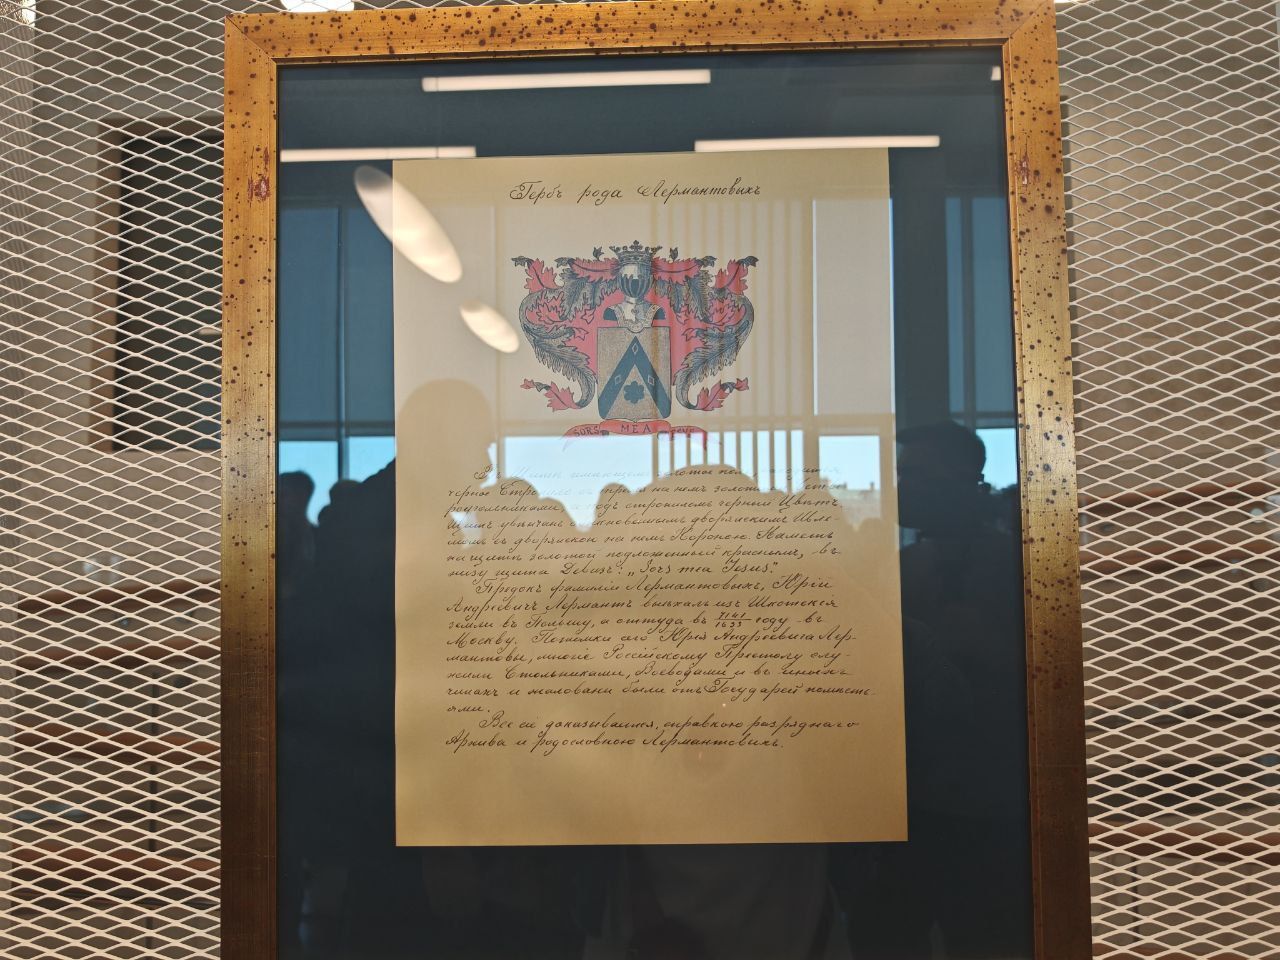 Гербъ рода Лермантовыхъ
SORS MEA
Въ щитѣ имѣющемъ золотое поле
черное Стропило съ тремя на немъ золотыми
роугольниками, а подъ стропиломъ черный Цвѣтъ.
Щитъ увѣнчанъ обыкновеннымъ дворянскимъ Шле-
момъ съ дворянскою на немъ Короною. Наметъ
на щитѣ золотой подложенный краснымъ, въ
низу щита Девизъ: „Sors mea Jesus“.
Предокъ фамиліи Лермантовыхъ, Юрій
Андреевичъ Лермантъ выѣхалъ изъ Шкотскія
земли въ Польшу, а оттуда въ 7141/1633 году въ
Москву. Потомки его Юрія Андреевича Лер-
мантовы, многіе Россійскому Престолу слу-
жили Стольниками, Воеводами и въ иныхъ
чинахъ и жалованы были отъ Государей помѣсть-
ями.
Все сіе доказывается, справкою разряднаго
Архива и родословною Лермантовыхъ.